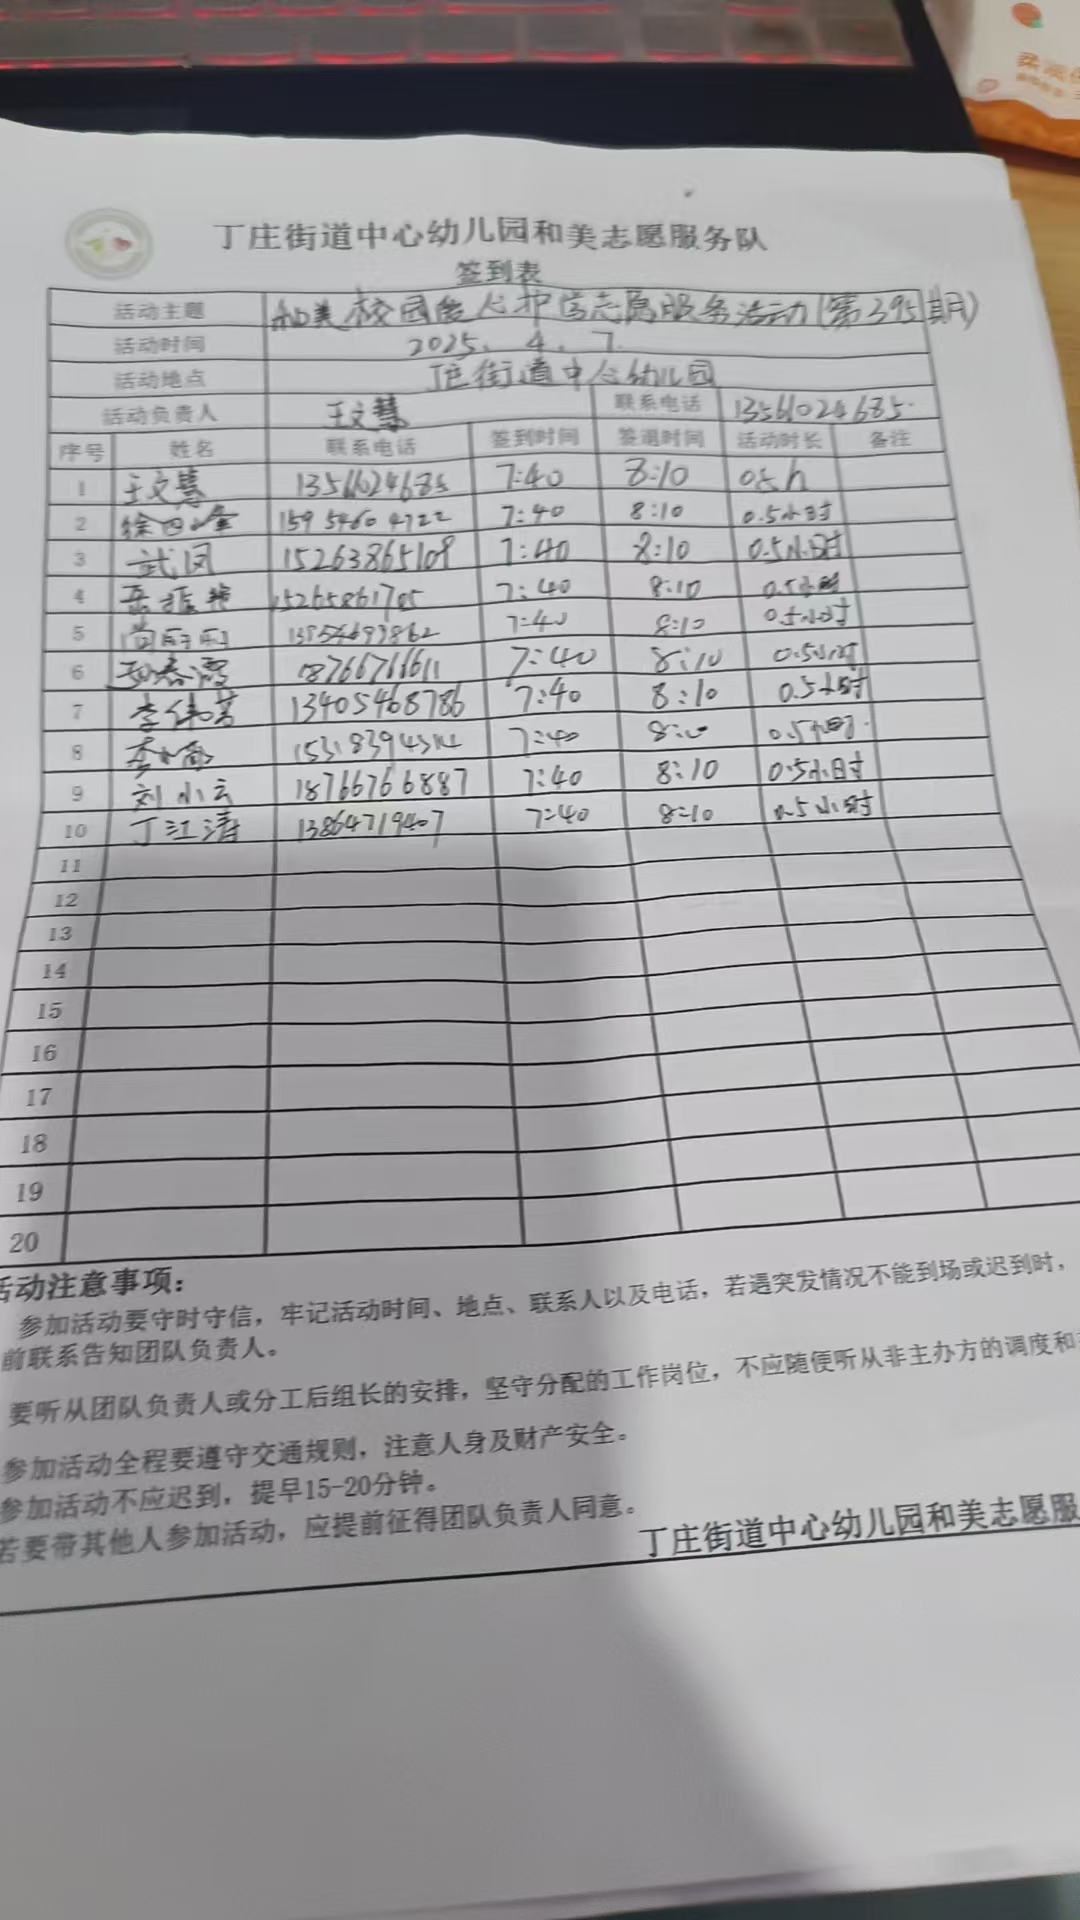 丁庄街道中心幼儿园和美志愿服务队
签到表
活动主题 和美校园爱心护学志愿服务活动(第395期)
活动时间 2025. 4. 7.
活动地点 丁庄街道中心幼儿园
活动负责人 王文慧 联系电话 13561024685.
序号 姓名 联系电话 签到时间 签退时间 活动时长 备注
1 王文慧 13561024685 7:40 8:10 0.5h
2 15954604722 7:40 8:10 0.5小时
3 武凤 15263865109 7:40 8:10 0.5小时
4 7:40 8:10 0.5小时
5 7:40 8:10 0.5小时
6 18766766611 7:40 8:10 0.5小时
7 李伟芳 13405468786 7:40 8:10 0.5小时
8 7:40 8:10 0.5小时.
9 刘小云 18766766887 7:40 8:10 0.5小时
10 丁江涛 13864719407 7:40 8:10 0.5小时
11
12
13
14
15
16
17
18
19
20
活动注意事项:
参加活动要守时守信,牢记活动时间、地点、联系人以及电话,若遇突发情况不能到场或迟到时,
前联系告知团队负责人。
要听从团队负责人或分工后组长的安排,坚守分配的工作岗位,不应随便听从非主办方的调度和
参加活动全程要遵守交通规则,注意人身及财产安全。
参加活动不应迟到,提早15-20分钟。
若要带其他人参加活动,应提前征得团队负责人同意。
丁庄街道中心幼儿园和美志愿服